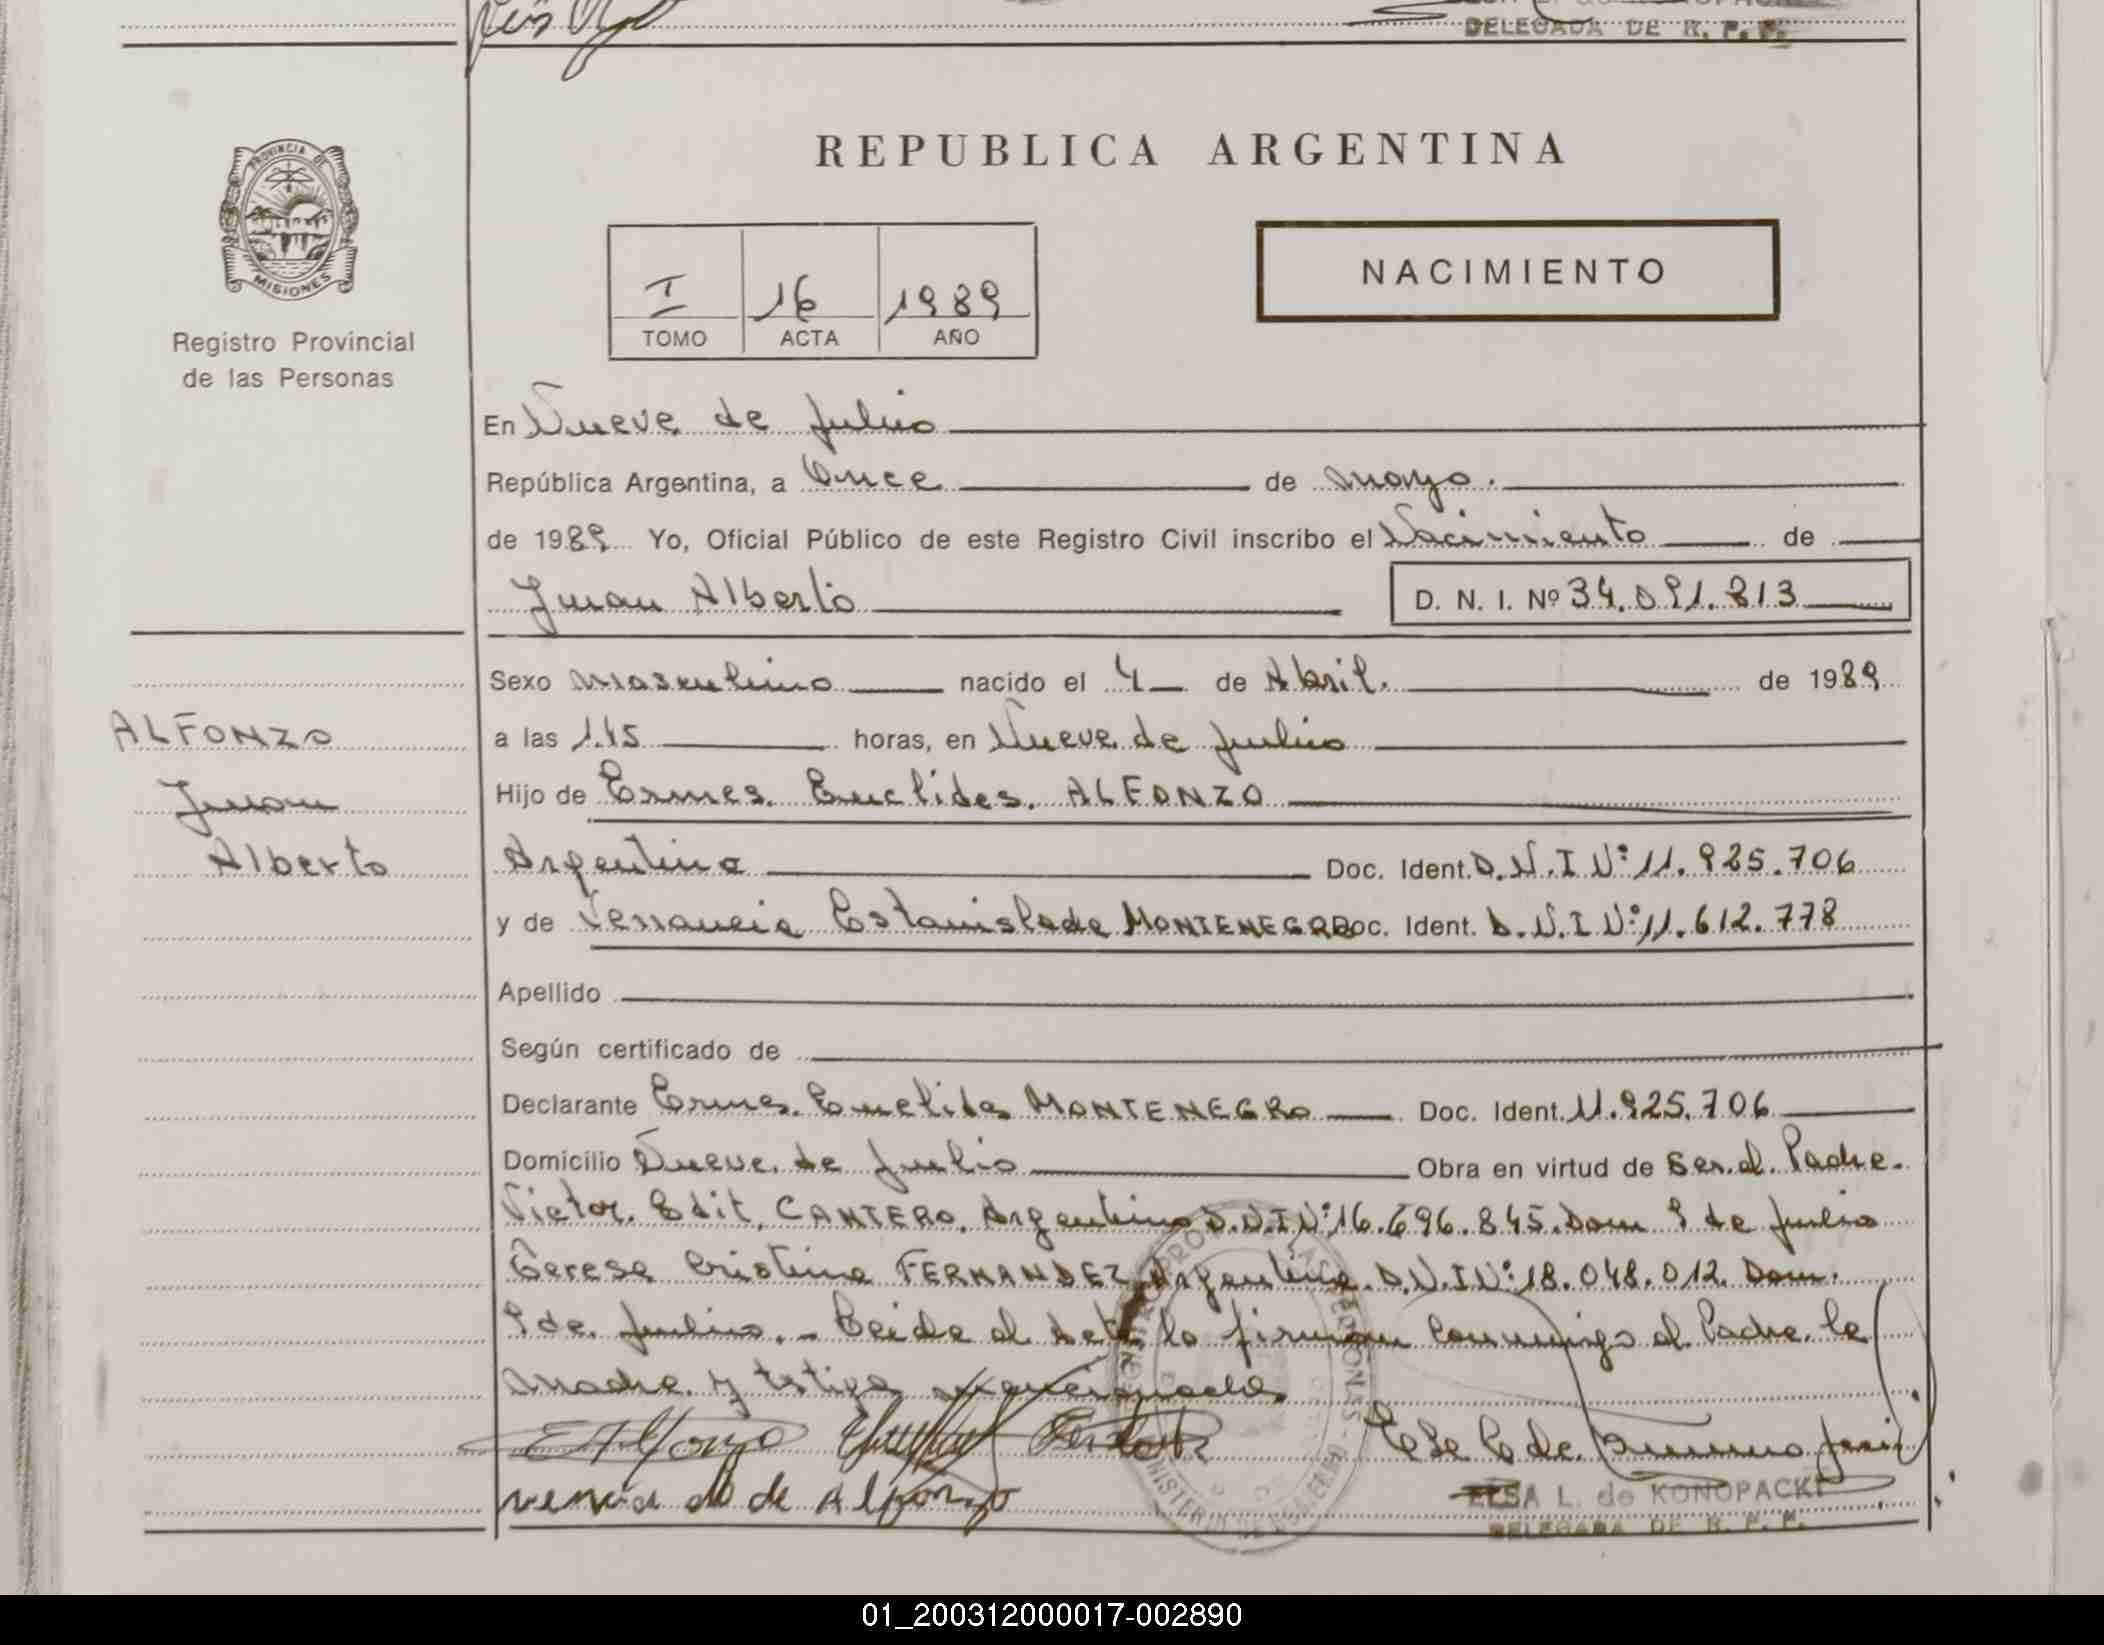 DELEGADA DE R. P. P.
PROVINCIA DE
MISIONES
Registro Provincial
de las Personas
REPUBLICA ARGENTINA
I 16 1989
TOMO ACTA AÑO
NACIMIENTO
En Nueve de Julio
República Argentina, a Once de mayo.
de 1989 Yo, Oficial Público de este Registro Civil inscribo el Nacimiento de
Juan Alberto D. N. I. Nº 34.091.813
Sexo Masculino nacido el 4 de Abril. de 1989
ALFONZO
Juan
Alberto
a las 1.45 horas, en Nueve de Julio
Hijo de Ermes Euclides ALFONZO
Argentino Doc. Ident. D.N.I Nº 11.925.706
y de Estanislada MONTENEGRO Doc. Ident. D.N.I Nº 11.612.778
Apellido
Según certificado de
Declarante Ermes Euclides MONTENEGRO Doc. Ident. 11.925.706
Domicilio Nueve de Julio Obra en virtud de Ser el Padre.
Victor Edit CANTERO, Argentino D.N.I Nº 16.696.845. Dom 9 de Julio
Teresa Cristina FERNANDEZ Argentina D.N.I Nº 18.048.012. Dom.
9 de Julio. - Leida el Acta la firman conmigo el Padre la
Madre y testigo
E Alfonzo
de Alfonzo
ELSA L. de KONOPACKI
DELEGADA DE R. P. P.
01_200312000017-002890